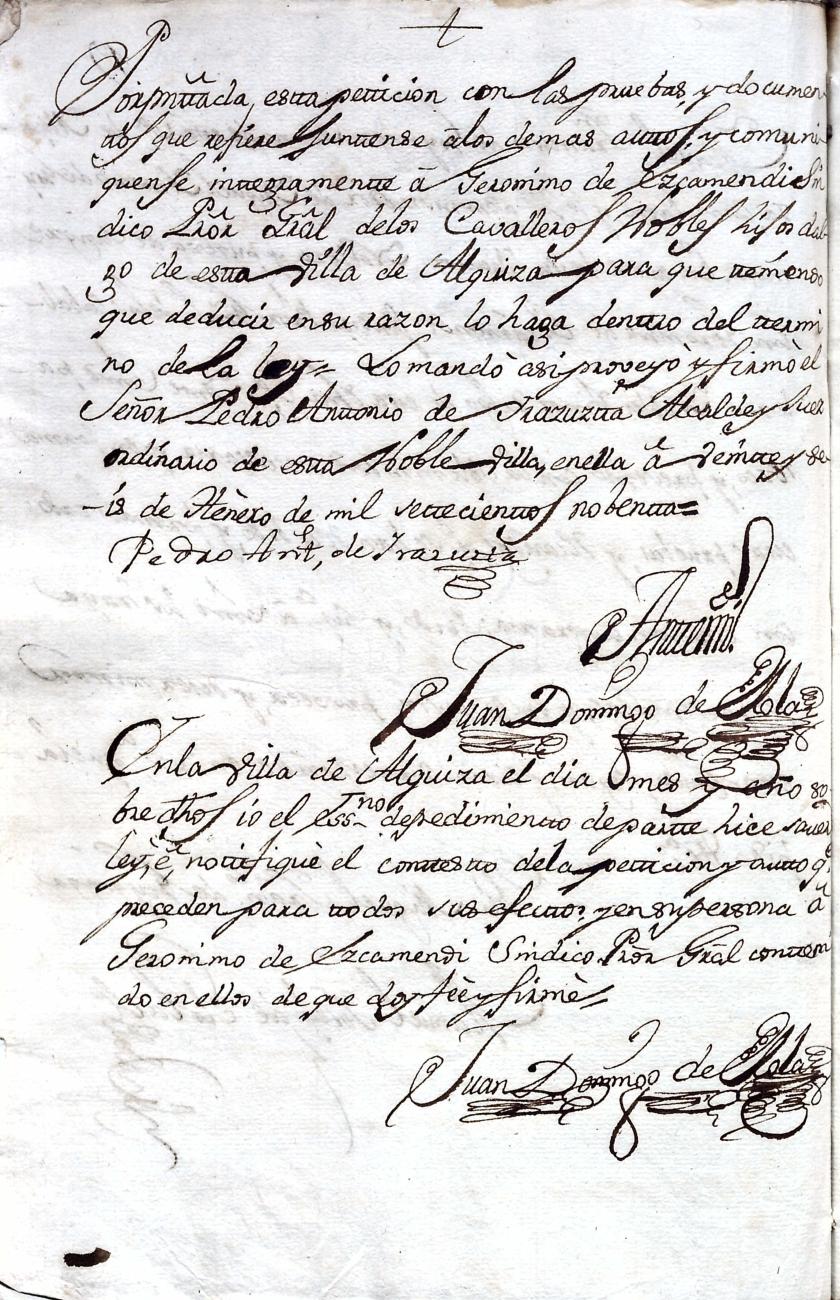 Por presenttada, estta petticion con las pruebas, y documen
ttos que refiere Junttense â los demas auttos, y comuni
quense integramentte â Geronimo de Ezcamendi Sin
dico Pror Gral delos Cavalleros Nobles hijos dal
go de estta villa de Alquiza para que tteniendo
que deducir en su razon lo haga denttro del ttermi
no de la ley= Lo mandò asi proveyò y firmò el
Señor Pedro Anttonio de Irazuztta Alcalde y Juez
ordinario de estta Noble villa, en ella â veintte y se
-is de Henero de mil settecienttos nobentta=
Pedro Antt, de Irazuzta
Antemi
Juan Domingo de
En la villa de Alquiza el dia mes y año so
bre dhos io el essno de pedimientto de partte hice saver
ley, ê, nottifiquè el conttestto dela petticion y autto q
preceden para ttodos sus efecttos, y en su persona â
Geronimo de Ezcamendi Sindico Pror Gral contteni
do en ellos de que doy feè y firmè=
Juan Domingo de